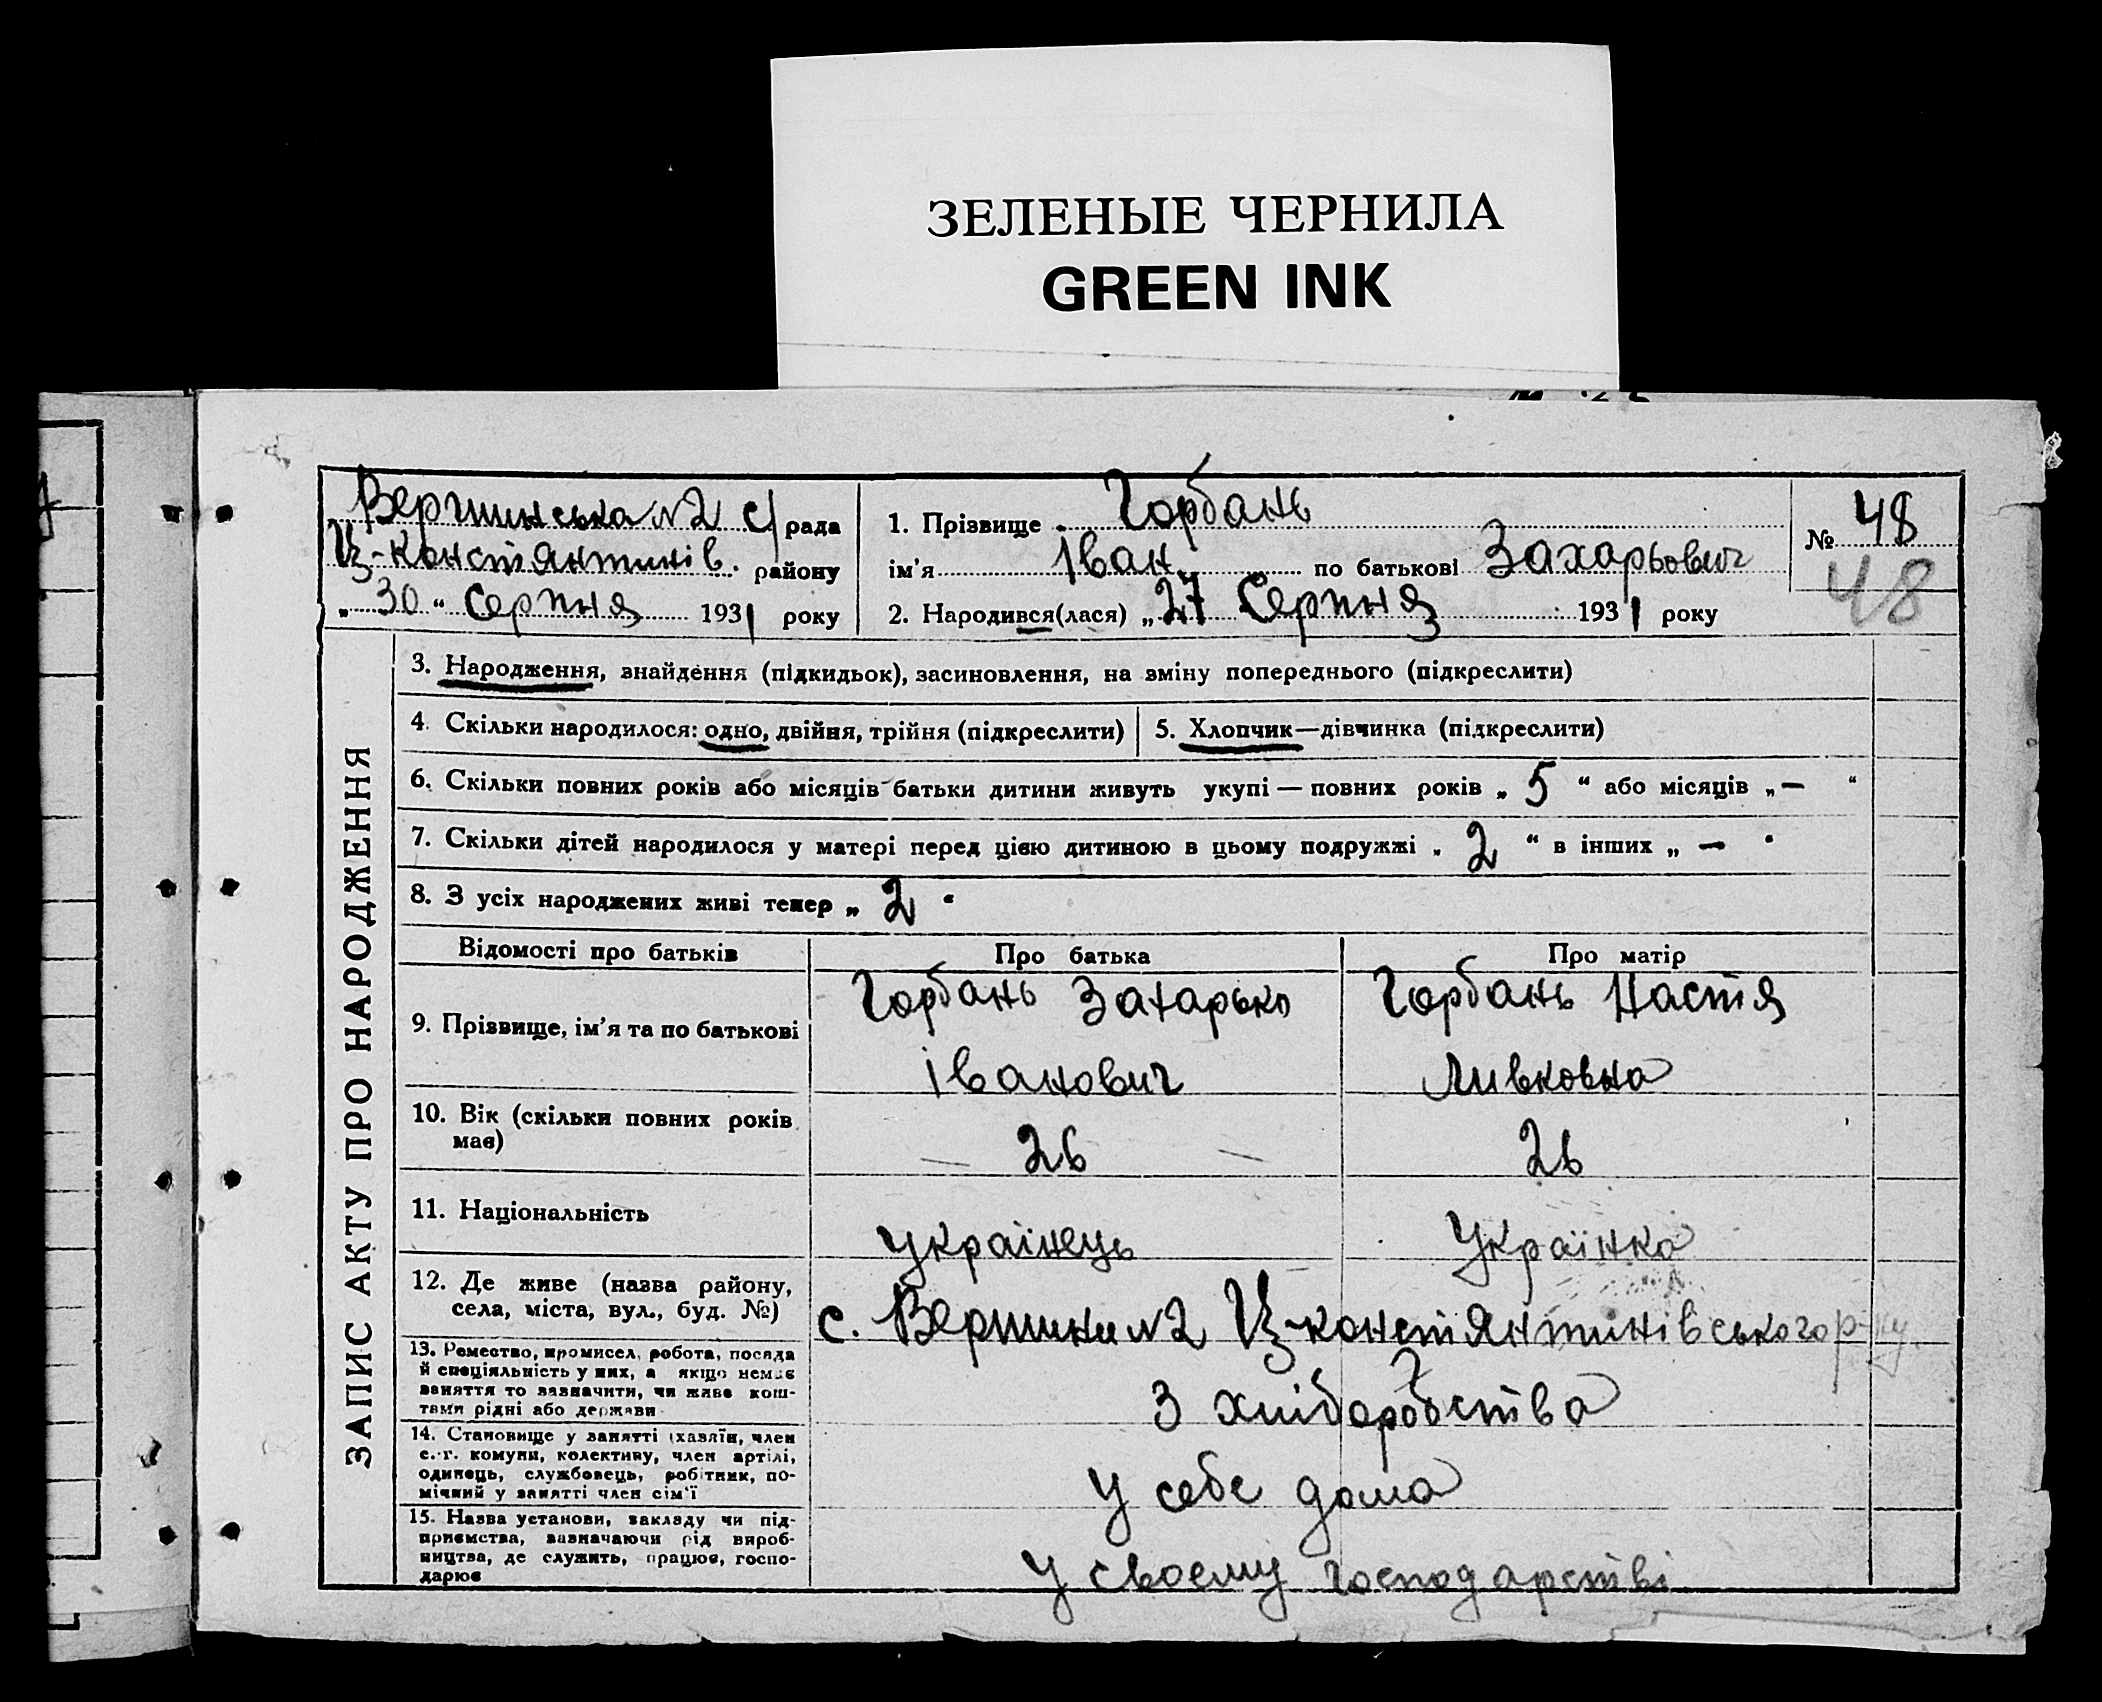 ЗЕЛЕНЫЕ ЧЕРНИЛА
GREEN INK
Вершинська №2 с/рада
Ц-Констянтинів. району
„ 30 “ Серпня 1931 року
1. Прізвище Горбань
ім'я Іван по батькові Захарьович
2. Народився(лася) „ 27 Серпня 1931 року
№ 48
48
ЗАПИС АКТУ ПРО НАРОДЖЕННЯ
3. Народження, знайдення (підкидьок), засиновлення, на зміну попереднього (підкреслити)
4. Скільки народилося: одно, двійня, трійня (підкреслити)
5. Хлопчик—дівчинка (підкреслити)
6. Скільки повних років або місяців батьки дитини живуть укупі — повних років „ 5 “ або місяців „ — “
7. Скільки дітей народилося у матері перед цією дитиною в цьому подружжі „ 2 “ в інших „ — “
8. З усіх народжених живі тепер „ 2 “
Відомості про батьків Про батька Про матір
9. Прізвище, ім'я та по батькові
Горбань Захарько
Іванович
Горбань Настя
Ливковна
10. Вік (скільки повних років
має)
26 26
11. Національність
українець Українка
12. Де живе (назва району,
села, міста, вул., буд. №)
с. Вершини №2 Ц-констянтинівського р-ну
13. Ремество, промисел, робота, посада
й спеціяльність у них, а якщо немає
заняття то зазначити, чи живе кош-
тами рідні або держави
З хліборобства
14. Становище у занятті (хазяїн, член
с.-г. комуни, колективу, член артілі,
одинець, службовець, робітник, по-
мічний у занятті член сім'ї
у себе дома
15. Назва установи, закладу чи під-
приємства, зазначаючи рід вироб-
ництва, де служить, працює, госпо-
дарює
у своєму господарстві